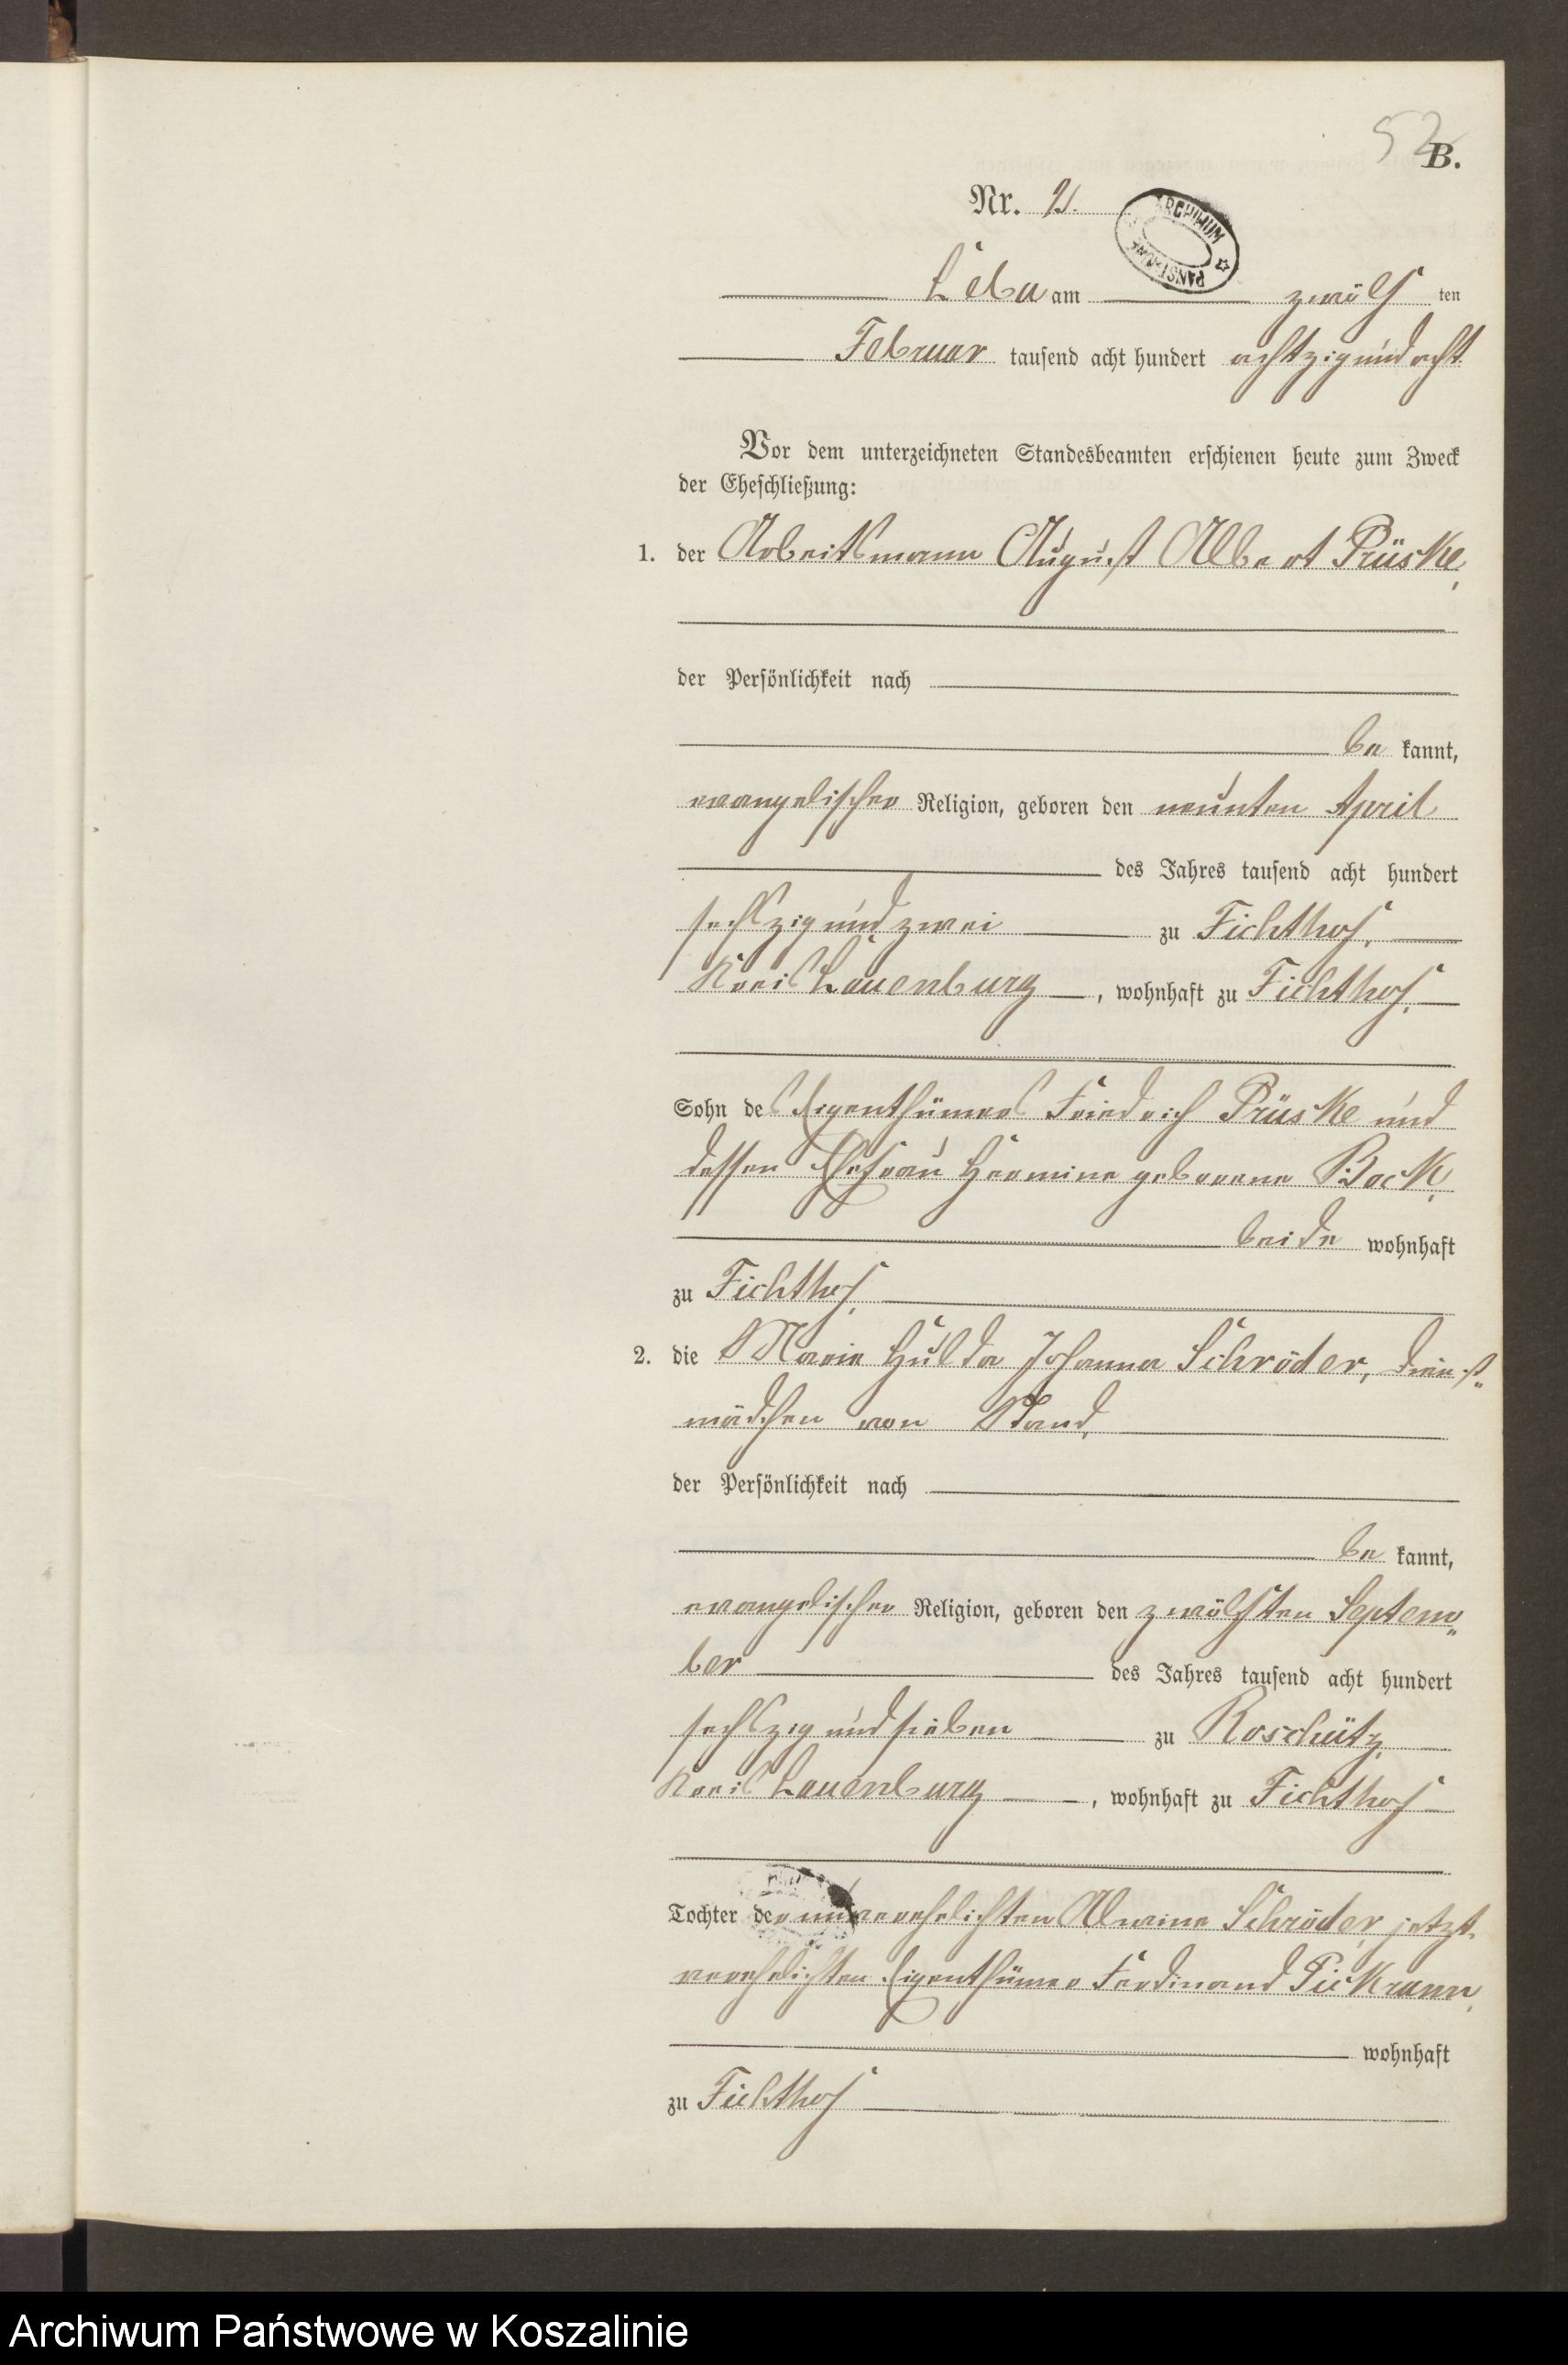 52
B.
Nr. 2.
ARCHIWUM PAŃSTWOWE
Leba am zwölf ten
Februar tausend acht hundert achtzig und acht
Vor dem unterzeichneten Standesbeamten erschienen heute zum Zweck
der Eheschließung:
1. der Arbeitsmann August Albert Prüske,
der Persönlichkeit nach
be kannt,
evangelischer Religion, geboren den neunten April
des Jahres tausend acht hundert
sechszig und zwei zu Fichthof,
Kreis Lauenburg, wohnhaft zu Fichthof,
Sohn des Eigenthümers Friedrich Prüske und
dessen Ehefrau Hermine geborene Bock,
beide wohnhaft
zu Fichthof,
2. die Marie Hulda Johanna Schröder, Dienst„
mädchen von Stand,
der Persönlichkeit nach
be kannt,
evangelischer Religion, geboren den zwölften Septem„
ber des Jahres tausend acht hundert
sechszig und sieben zu Roschütz,
Kreis Lauenburg, wohnhaft zu Fichthof
Tochter der unverehelichten Alwine Schröder, jetzt
verehelichten Eigenthümer Ferdinand Pickrann,
wohnhaft
zu Fichthof
Archiwum Państwowe w Koszalinie